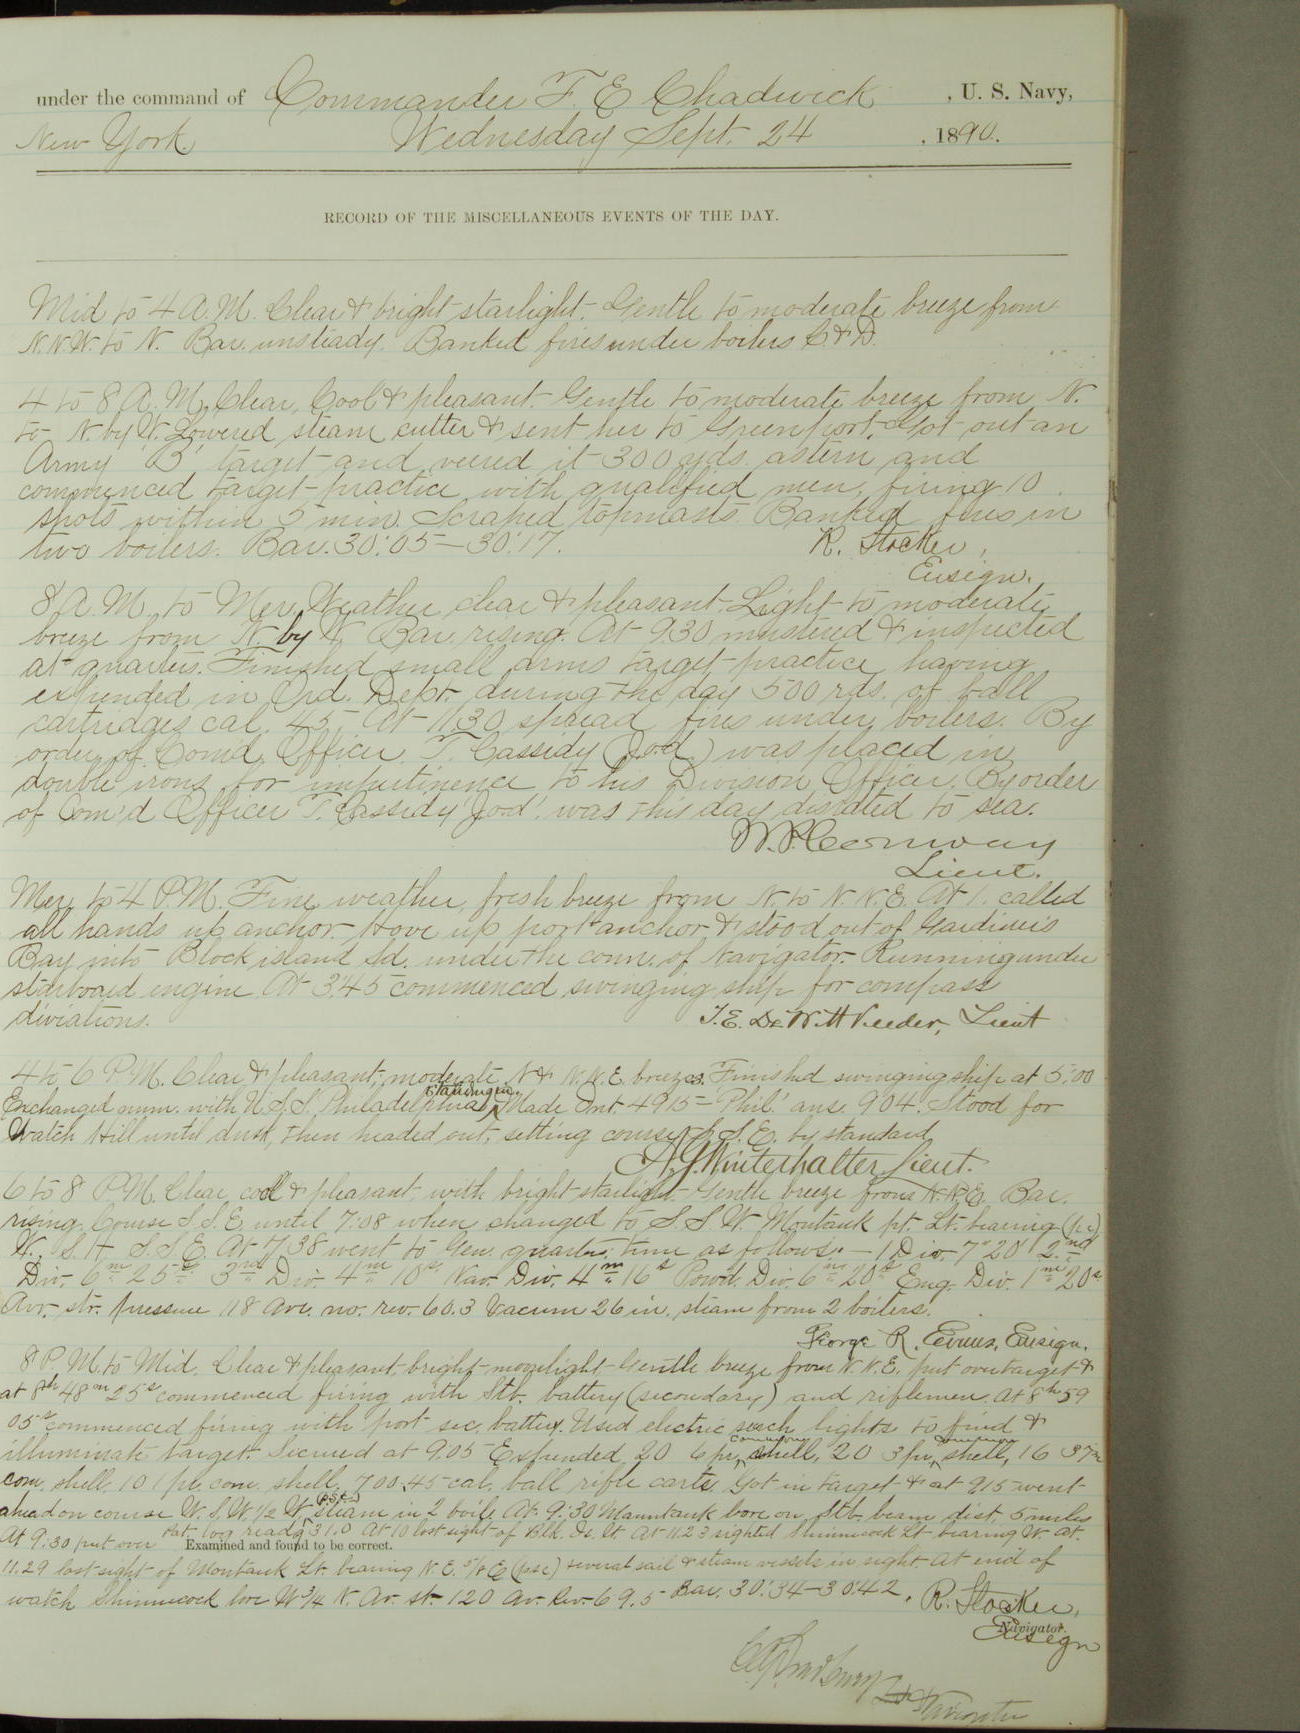 under the command of Commander F. E. Chadwick, U. S. Navy,
New York. Wednesday Sept. 24, 1890.
RECORD OF THE MISCELLANEOUS EVENTS OF THE DAY.
Mid to 4 A.M. Clear & bright starlight. Gentle to moderate breeze from
N.N.W. to N. Bar. unsteady. Banked fires under boilers C & D.
4 to 8 A.M. Clear, Cool & pleasant. Gentle to moderate breeze from N.
to N. by W. Lowered steam cutter & sent her to Greenport. Got out an
Army "B" target and veered it 300 yds. astern and
commenced target practice with qualified men, firing 10
shots within 5 min. Scraped topmasts. Banked fires in
two boilers. Bar. 30.05 – 30.17. R. Stocker,
Ensign.
8 A.M. to Mer. Weather clear & pleasant. Light to moderate
breeze from N. by W. Bar. rising. At 9.30 mustered & inspected
at quarters. Finished small arms target practice having
expended in Ord. Dept. during the day 500 rds. of ball
cartridges cal. 45. At 11.30 spread fires under boilers. By
order of Comd. Officer, T. Cassidy was placed in
double irons for impertinence to his Division Officer. By order
of Com'd Officer T. Cassidy was this day disrated to sea.
W. P. Conway
Lieut.
Mer. to 4 P.M. Fine weather, fresh breeze from N. to N.N.E. At 1. called
all hands up anchor. Hove up port anchor & stood out of Gardiner's
Bay into Block island Sd. under the conn. of Navigator. Running under
starboard engine. At 3.45 commenced swinging ship for compass
diviations. T. E. De Witt Veeder, Lieut
4 to 6 P.M. Clear & pleasant; moderate N & N.N.E. breezes. Finished swinging ship at 5:00
Exchanged num. with U.S.S. Philadelphia, standing in. Made Int. 4915 – Phil.' ans. 904. Stood for
Watch Hill until dusk, then headed out, setting course S.S.E. by standard
A. G. Winterhalter, Lieut.
6 to 8 P.M. Clear cool & pleasant, with bright starlight. Gentle breeze from N.N.E. Bar.
rising. Course S.S.E. until 7:08 when changed to S.S.W. Montauk pt. Lt. bearing (psc)
At 7.38 went to Gen. quarters; time as follows: – 1 Div. 7m 20s 2nd
Div. 6m 25s 3rd Div. 4m 10s, Nav. Div. 4m 16s Powd. Div. 6m 20s Eng. Div. 1m 20s
Avr. str. pressure 118 Ave. no. rev. 60.3 Vacuum 26 in. steam from 2 boilers.
George R. Evans, Ensign.
8 P.M. to Mid. Clear & pleasant, bright moonlight Gentle breeze from N.N.E. put over target &
at 8h 48m 25s commenced firing with Stb. battery (secondary) and riflemen. At 8h 59
05s commenced firing with port sec. battery. Used electric search lights to find &
illuminate target. Secured at 9.05 Expended 20 6 pr. common shell, 20 3 pr. common shell, 16 37m
com. shell, 10 1 pr. com. shell, 700 .45 cal. ball rifle carts. Got in target & at 9 15 went
ahead on course W.S.W. 1/2 W. (p.s.c.) steam in 2 boile. At 9:30 Mauntauk bore on Stb. beam dist. 5 miles
At 9:30 put over Pat. log readg 31.0 At 10 lost sight of Blk. Is. Lt. At 11.23 sighted Shinnecock Lt. bearing W. at
Examined and found to be correct.
11.29 lost sight of Montauk Lt. bearing N.E. 5/8 E (psc) several sail & steam vessels in sight At end of
watch Shinnecock bore W 3/4 N. Av. st. 120 Av. Rev. 69.5 Bar. 30.34 – 30.42. R. Stocker,
Navigator.
Ensign